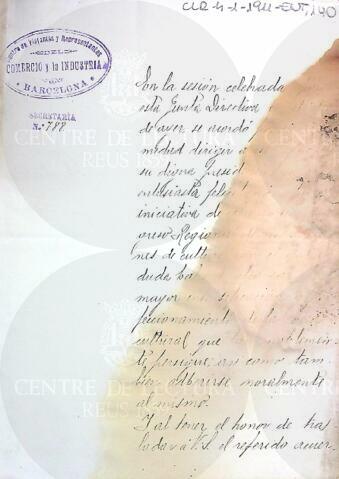 CLR 4-1-1911-EXT, 140
Centro de Viajantes y Representantes
DEL
COMERCIO y la INDUSTRIA
DE
BARCELONA
SECRETARIA
N.º 788
CENTRE DE LECTURA
REUS 1859
En la sesión celebrada
esta Junta Directiva
de ayer se acordó
midad dirigir
su digna presid
entusiasta feli
iniciativa de
greso Regiona
nes de cultu
duda
mayor
feccionamiento
cultural que
te persigue, así como tam-
bién adherirse moralmente
al mismo.
Y al tener el honor de tras-
ladar a V.S. el referido acuer-
CENTRE DE LECTURA
REUS 1859